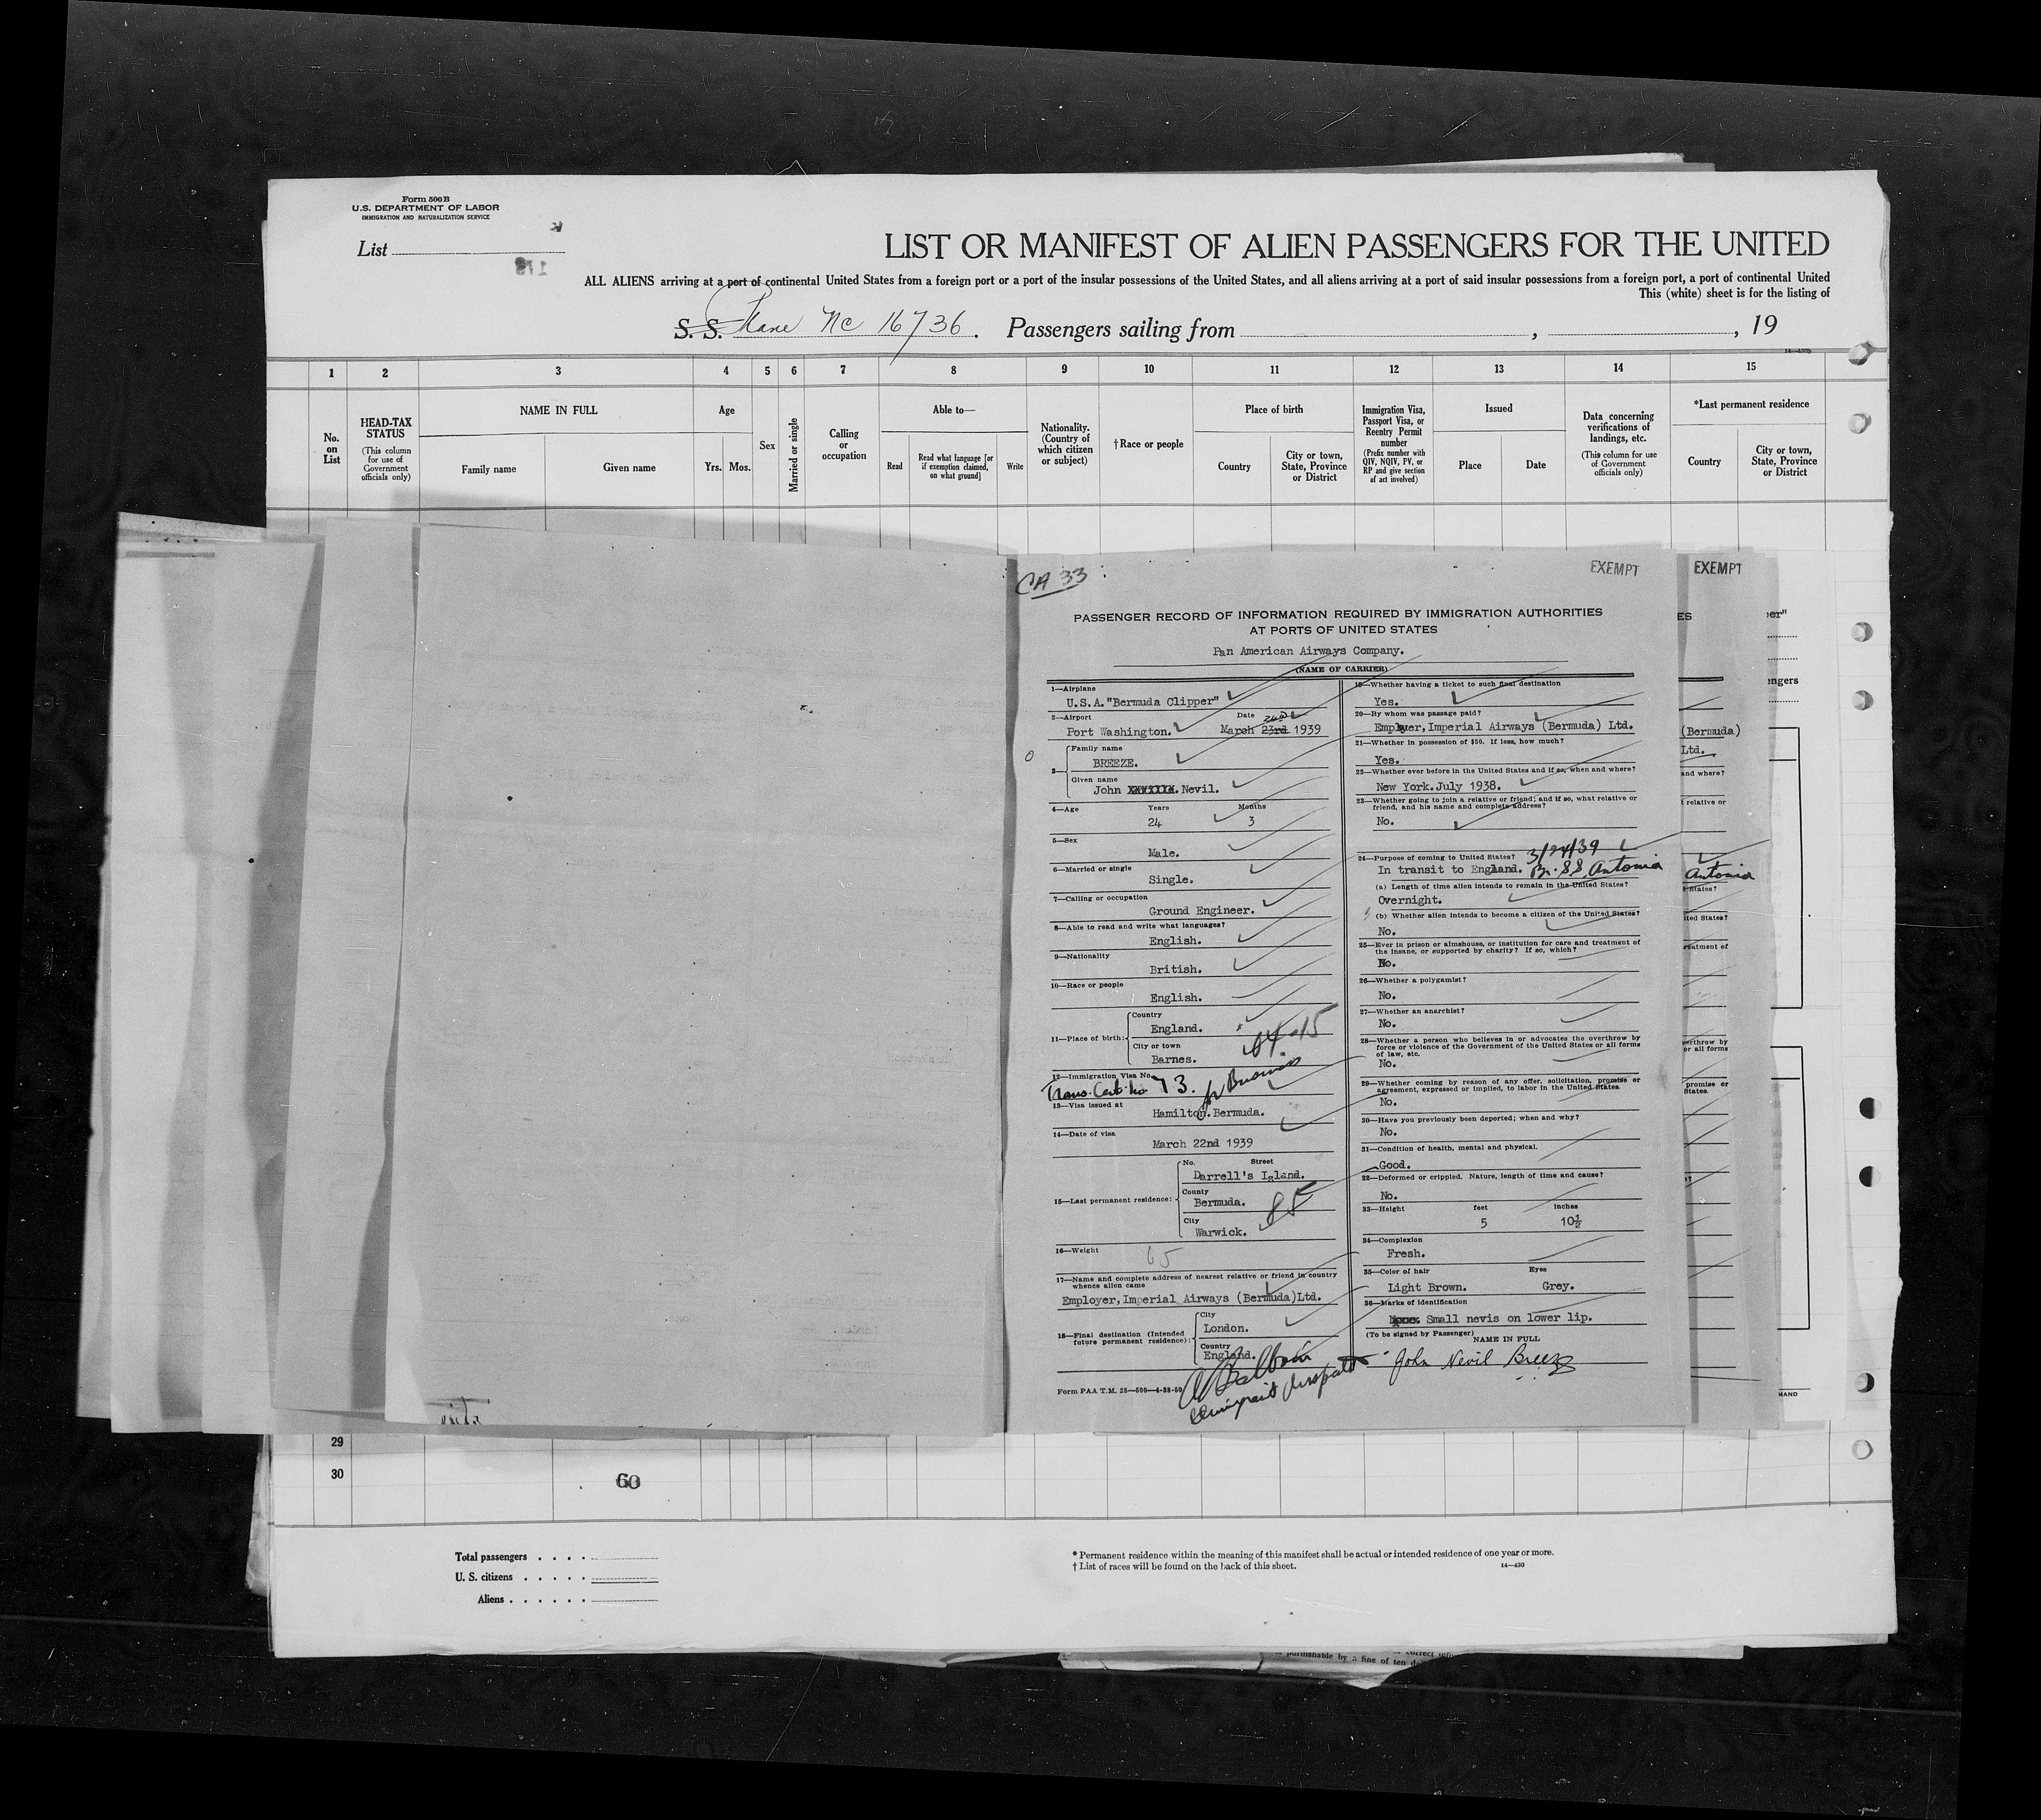 Form 500 B
U.S. DEPARTMENT OF LABOR
IMMIGRATION AND NATURALIZATION SERVICE
List
LIST OR MANIFEST OF ALIEN PASSENGERS FOR THE UNITED
ALL ALIENS arriving at a port of continental United States from a foreign port or a port of the insular possessions of the United States, and all aliens arriving at a port of said insular possessions from a foreign port, a port of continental United
This (white) sheet is for the listing of
S. S. Plane NC 16736. Passengers sailing from , , 19
1 2 3 4 5 6 7 8 9 10 11 12 13 14 15
No. on List
HEAD-TAX STATUS
(This column for use of Government officials only)
NAME IN FULL
Family name Given name
Age
Yrs. Mos.
Sex
Married or single
Calling or occupation
Able to—
Read
Read what language [or if exemption claimed, on what ground]
Write
Nationality. (Country of which citizen or subject)
†Race or people
Place of birth
Country
City or town, State, Province or District
Immigration Visa, Passport Visa, or Reentry Permit number
(Prefix number with QIV, NQIV, PV, or RP and give section of act involved)
Issued
Place Date
Data concerning verifications of landings, etc.
(This column for use of Government officials only)
*Last permanent residence
Country
City or town, State, Province or District
CA 33
EXEMPT
EXEMPT
PASSENGER RECORD OF INFORMATION REQUIRED BY IMMIGRATION AUTHORITIES
AT PORTS OF UNITED STATES
Pan American Airways Company.
(NAME OF CARRIER)
1—Airplane
U.S.A."Bermuda Clipper"
2—Airport Date
Port Washington. March 23rd 1939
3—
Family name
BREEZE.
Given name
John Nevil.
4—Age Years Months
24 3
5—Sex
Male.
6—Married or single
Single.
7—Calling or occupation
Ground Engineer.
8—Able to read and write what languages?
English.
9—Nationality
British.
10—Race or people
English.
11—Place of birth:
Country
England.
City or town
Barnes.
64-15
12—Immigration Visa No.
Trans. Cert. No 73. for Business
13—Visa issued at
Hamilton. Bermuda.
14—Date of visa
March 22nd 1939
15—Last permanent residence:
No. Street
Darrell's Island.
County
Bermuda.
City
Warwick.
85
16—Weight
65
17—Name and complete address of nearest relative or friend in country
whence alien came
Employer,Imperial Airways (Bermuda)Ltd.
18—Final destination (Intended
future permanent residence):
City
London.
Country
England.
Form PAA T.M. 28—500—4-38-50
19—Whether having a ticket to such final destination
Yes.
20—By whom was passage paid?
Employer,Imperial Airways (Bermuda) Ltd.
21—Whether in possession of $50. If less, how much?
Yes.
22—Whether ever before in the United States and if so, when and where?
New York.July 1938.
23—Whether going to join a relative or friend; and if so, what relative or
friend, and his name and complete address?
No.
24—Purpose of coming to United States? 3/24/39
In transit to England. Br. SS Antonia
(a) Length of time alien intends to remain in the United States?
Overnight.
(b) Whether alien intends to become a citizen of the United States?
No.
25—Ever in prison or almshouse, or institution for care and treatment of
the insane, or supported by charity? If so, which?
No.
26—Whether a polygamist?
No.
27—Whether an anarchist?
No.
28—Whether a person who believes in or advocates the overthrow by
force or violence of the Government of the United States or all forms
of law, etc.
No.
29—Whether coming by reason of any offer, solicitation, promise or
agreement, expressed or implied, to labor in the United States.
No.
30—Have you previously been deported; when and why?
No.
31—Condition of health, mental and physical.
Good.
32—Deformed or crippled. Nature, length of time and cause?
No.
33—Height feet inches
5 10½
34—Complexion
Fresh.
35—Color of hair Eyes
Light Brown. Grey.
36—Marks of identification
Small nevis on lower lip.
(To be signed by Passenger)
NAME IN FULL
John Nevil Breeze
(Bermuda)
Ltd.
and where?
t relative or
Antonia
States?
ited States?
reatment of
verthrow by
or all forms
promise or
States.
ngers
29
30
60
Total passengers
U. S. citizens
Aliens
* Permanent residence within the meaning of this manifest shall be actual or intended residence of one year or more.
† List of races will be found on the back of this sheet.
14—430
punishable by a fine of ten